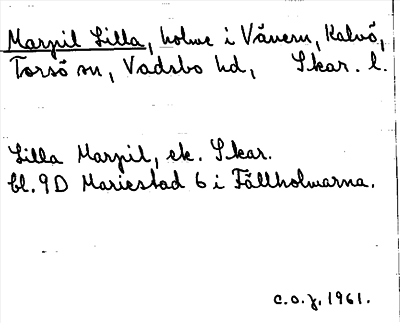 Marpil Lilla, holme i Vänern, Kalvö,
Torsö sn, Vadsbo hd, Skar. l.
Lilla Marpil, ek. Skar.
bl. 9D Mariestad 6 i Fällholmarna.
C.O.Z. 1961.